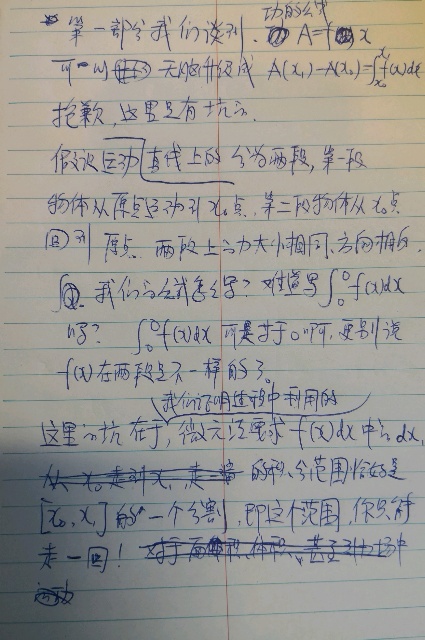 第一部分我们谈到. 功的公式 A=f x
可以 无脑升级成 A(x₁)-A(x₀)=∫f(x)dx
抱歉,这里是有坑的.
假设运动直线上的 分为两段,第一段
物体从原点运动到x₀点.第二段物体从x₀点
回到 原点. 两段上的力大小相同,方向相反.
我们的公式怎么写? 难道写∫₀⁰f(x)dx
吗? ∫₀⁰f(x)dx 可是等于0啊,更别说
f(x)在两段是不一样的了.
我们证明过程中利用的
这里的坑在于,微元法要求 f(x)dx中的dx,
从 x₀走到x₁走一遍 的积分范围恰好是
[x₀,x₁]的一个分割,即这个范围,你只能
走一回! 对于面积,体积,甚至引力场中
运动